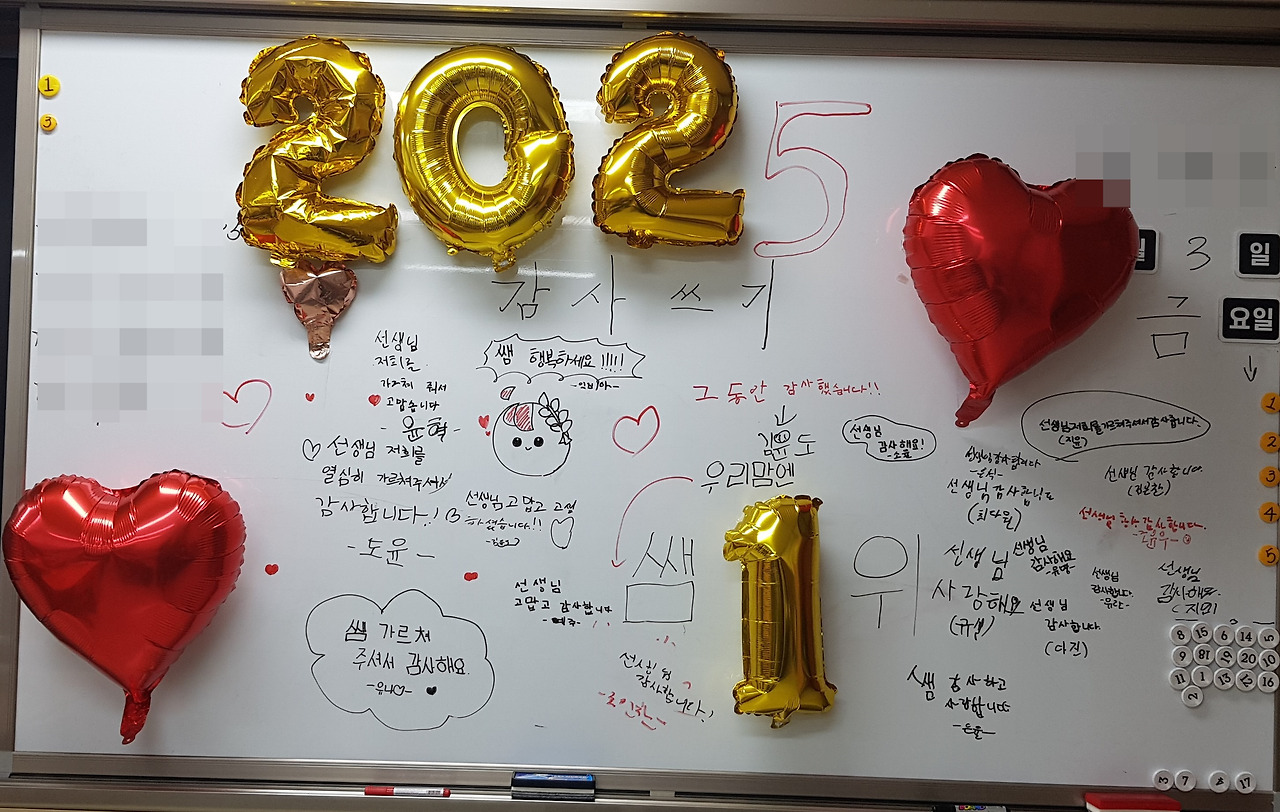 2025
감사쓰기
3
일
금
요일
선생님
저희를
가르쳐 줘서
고맙습니다
- 윤혁 -
쌤 행복하세요!!!!!
그동안 감사했습니다!!
우리맘에
쌤 1위
선생님 저희를
열심히 가르쳐주셔서
감사합니다!
- 도윤 -
선생님 고맙고 고생
하셨습니다!!
선생님
고맙고 감사합니다
쌤 가르쳐
주셔서 감사해요.
선생님
감사합니다!
선생님
감사해요!
- 소윤
선생님 저희를 가르쳐주셔서 감사합니다.
(지윤)
선생님 감사합니다
선생님 감사합니다
(최다율)
선생님 감사합니다.
선생님 항상 감사합니다.
선생님
사랑해요
선생님
감사해요
선생님
감사합니다.
선생님
감사합니다.
(다진)
선생님
감사해요.
쌤 감사하고
사랑합니다
1
3
1
2
3
4
5
8 15 6 14 5
9 18 19 20 10
11 1 13 12 16
2
3 7 4 17